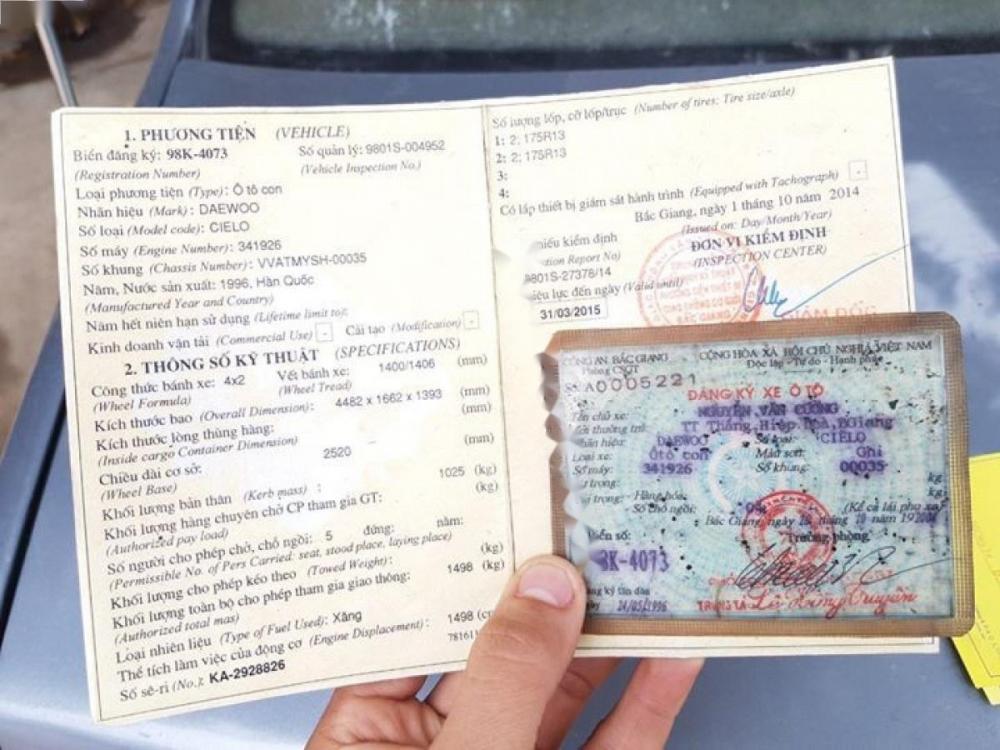 1. PHƯƠNG TIỆN (VEHICLE)
Biển đăng ký: 98K-4073 Số quản lý: 9801S-004952
(Registration Number) (Vehicle Inspection No.)
Loại phương tiện (Type): Ô tô con
Nhãn hiệu (Mark): DAEWOO
Số loại (Model code): CIELO
Số máy (Engine Number): 341926
Số khung (Chassis Number): VVATMYSH-00035
Năm, Nước sản xuất: 1996, Hàn Quốc
(Manufactured Year and Country)
Năm hết niên hạn sử dụng (Lifetime limit to):
Kinh doanh vận tải (Commercial Use) - Cải tạo (Modification) -
2. THÔNG SỐ KỸ THUẬT (SPECIFICATIONS)
Công thức bánh xe: 4x2 Vết bánh xe: 1400/1406 (mm)
(Wheel Formula) (Wheel Tread)
Kích thước bao (Overall Dimension): 4482 x 1662 x 1393 (mm)
Kích thước lòng thùng hàng: (mm)
(Inside cargo Container Dimension)
Chiều dài cơ sở: 2520 (mm)
(Wheel Base)
Khối lượng bản thân (Kerb mass) : 1025 (kg)
Khối lượng hàng chuyên chở CP tham gia GT: (kg)
(Authorized pay load)
Số người cho phép chở, chỗ ngồi: 5 đứng: nằm:
(Permissible No. of Pers Carried: seat, stood place, laying place)
Khối lượng cho phép kéo theo (Towed Weight): (kg)
Khối lượng toàn bộ cho phép tham gia giao thông: 1498 (kg)
(Authorized total mas)
Loại nhiên liệu (Type of Fuel Used): Xăng
Thể tích làm việc của động cơ (Engine Displacement): 1498
Số sê-ri (No.): KA-2928826
Số lượng lốp, cỡ lốp/trục (Number of tires; Tire size/axle)
1: 2; 175R13
2: 2; 175R13
3:
4:
Có lắp thiết bị giám sát hành trình (Equipped with Tachograph) -
Bắc Giang, ngày 1 tháng 10 năm 2014
(Issued on: Day/Month/Year)
hiếu kiểm định ĐƠN VỊ KIỂM ĐỊNH
Report No) (INSPECTION CENTER)
9801S-27378/14
iệu lực đến ngày (Valid until)
31/03/2015
GIÁM ĐỐC
CÔNG AN BẮC GIANG CỘNG HÒA XÃ HỘI CHỦ NGHĨA VIỆT NAM
Phòng CSGT Độc lập - Tự do - Hạnh phúc
A0005221
ĐĂNG KÝ XE Ô TÔ
Tên chủ xe: NGUYỄN VĂN CƯỜNG
TT Thắng, Hiệp Hoà, BGiang
DAEWOO Số loại: CIELO
Loại xe: Ôtô con Màu sơn: Ghi
Số máy: 341926 Số khung: 00035
trọng: kg
trọng: Hàng hóa: kg
Số chỗ ngồi: (Kể cả lái phụ xe)
Bắc Giang, ngày
Trưởng phòng
Biển số:
98K-4073
24/05/1996
TRUNG TÁ